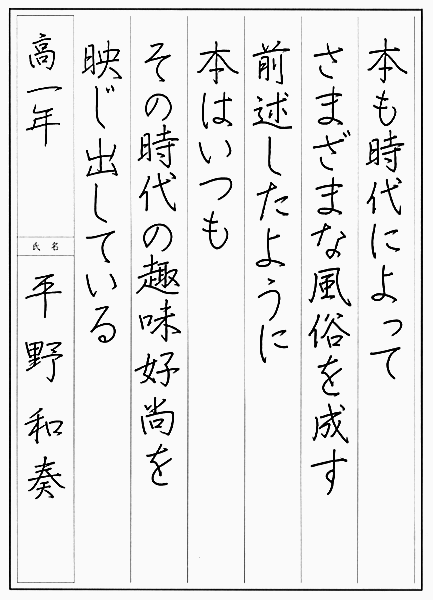 本も時代によって
さまざまな風俗を成す
前述したように
本はいつも
その時代の趣味好尚を
映じ出している
高一年
氏名
平野和奏